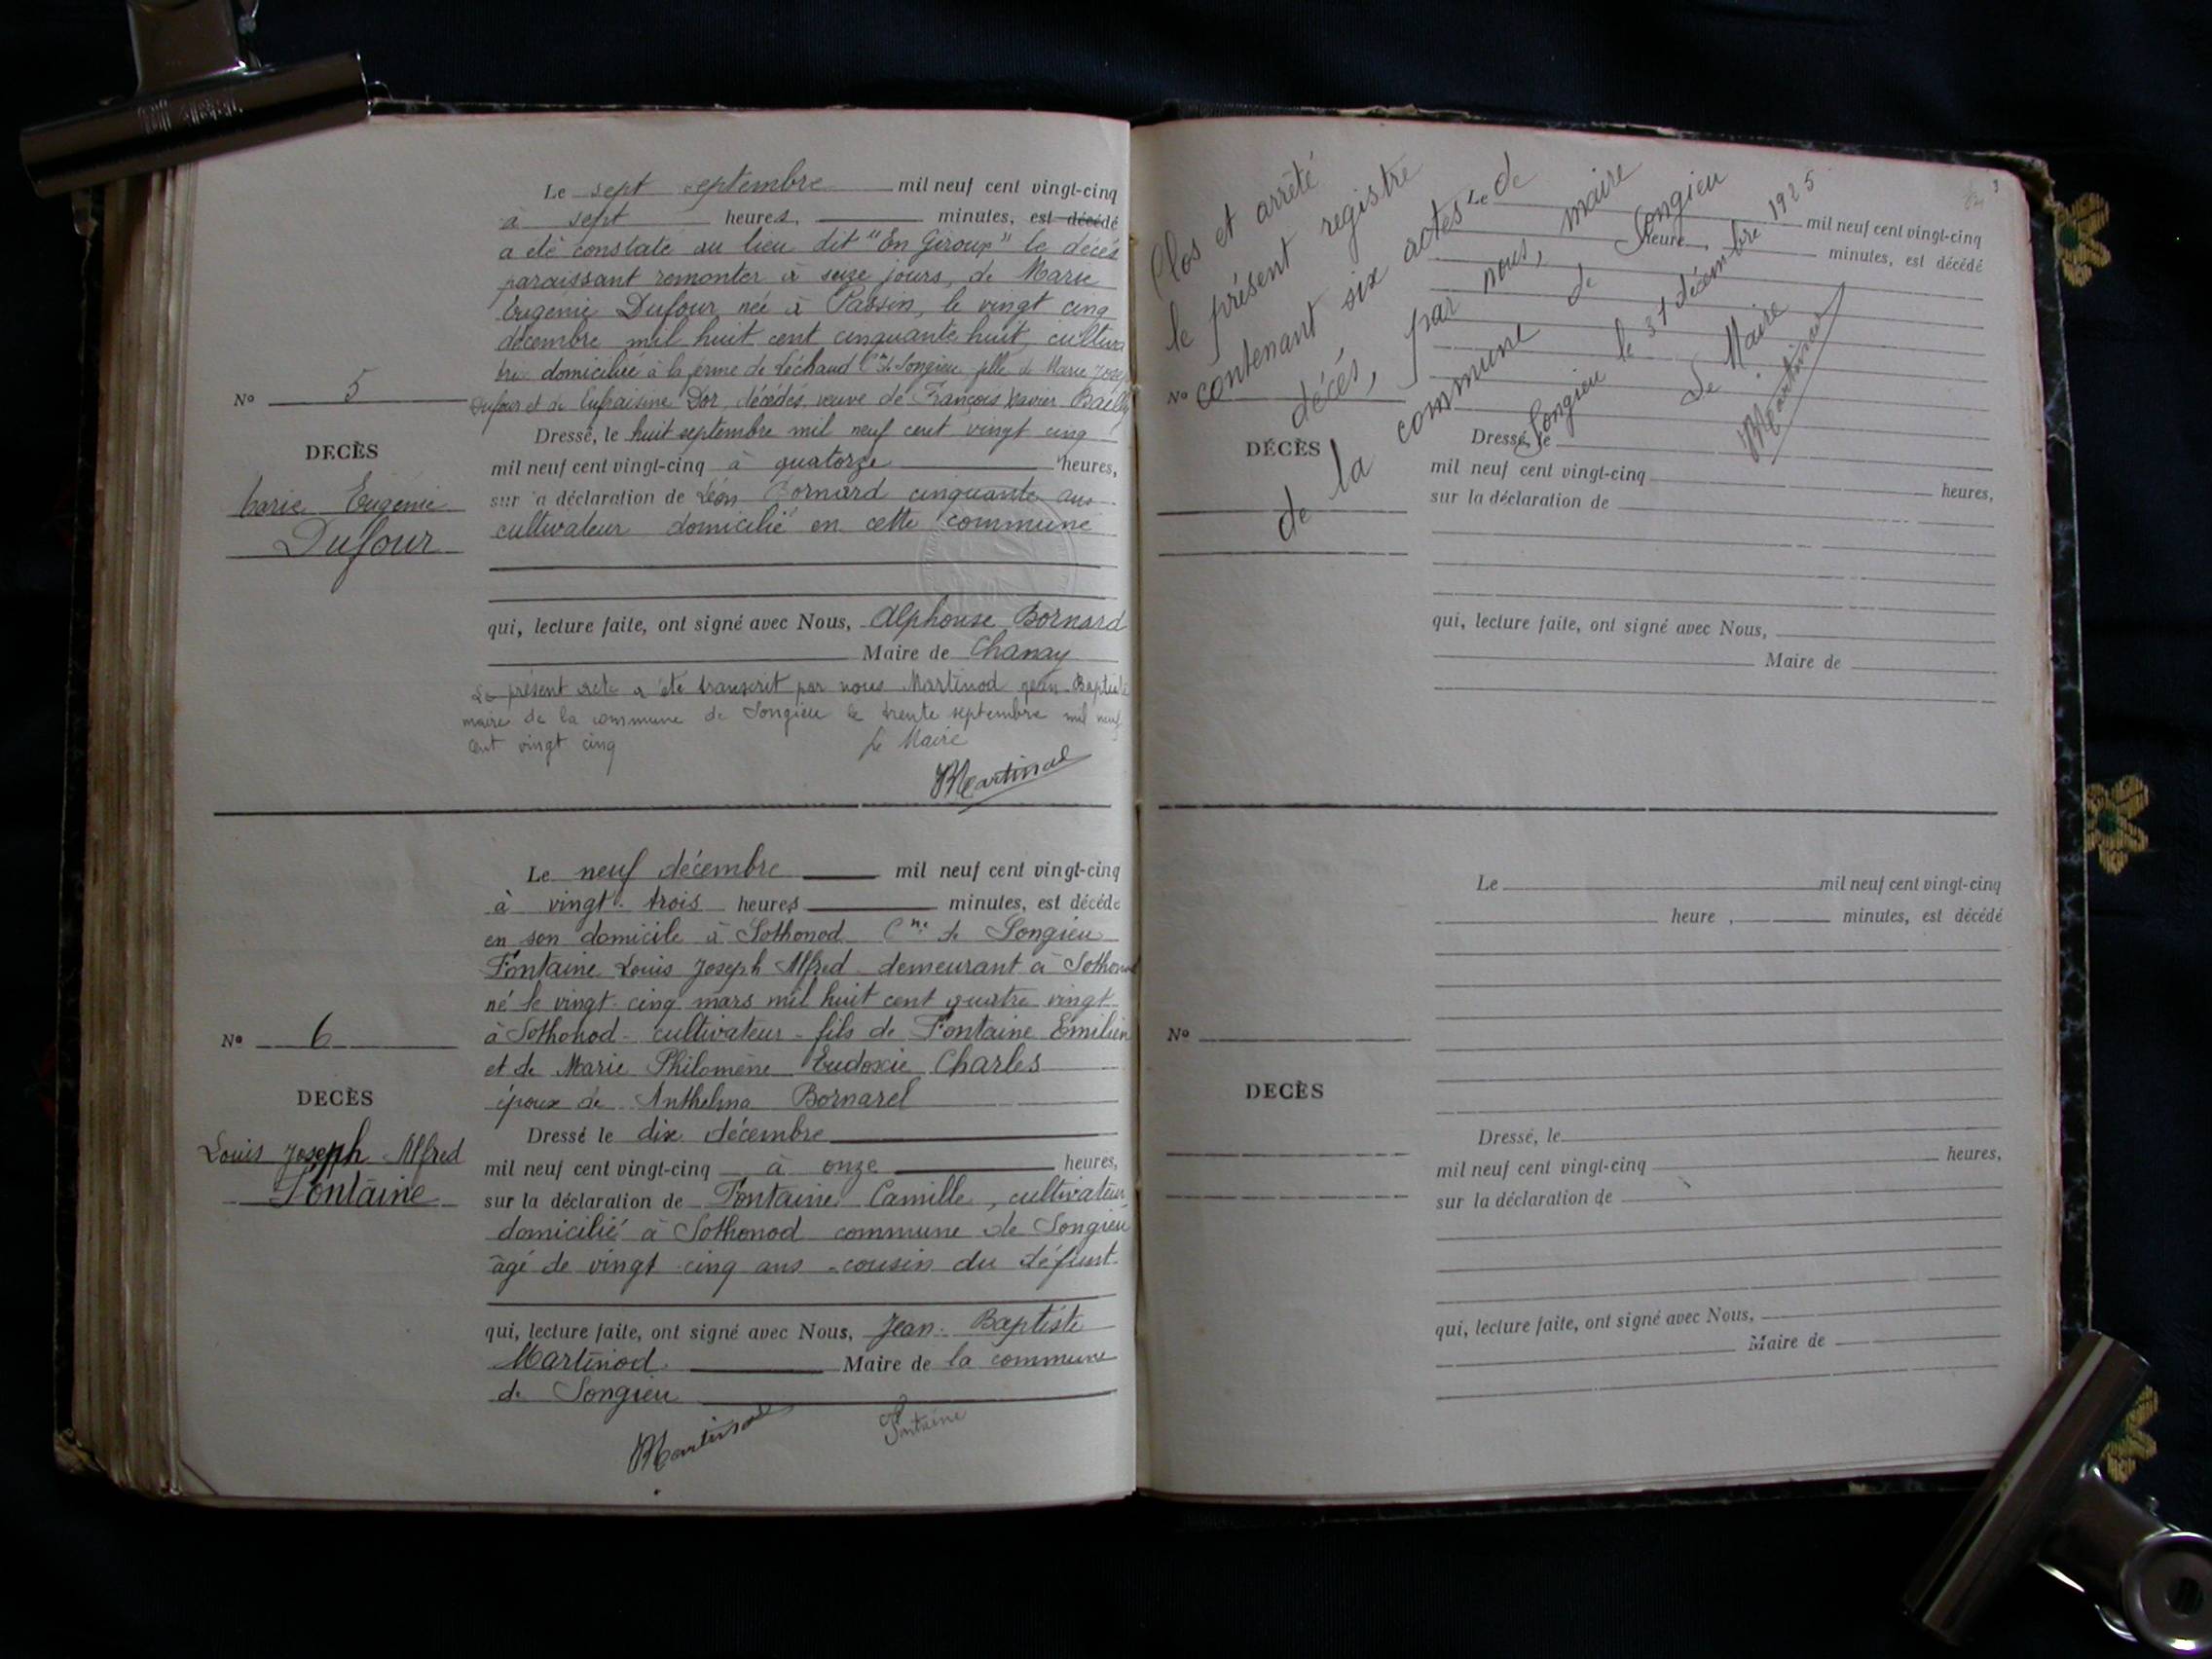 Le sept septembre mil neuf cent vingt-cinq
à sept heures, minutes, est décédé
a été constaté au lieu dit "En Giroup" le décès
paraissant remonter à seize jours, de Marie
Eugénie Dufour née à Passin, le vingt cinq
décembre mil huit cent cinquante huit, cultiva
trice domiciliée à la ferme de Léchaud Cne de Songieu fille de Marie Josep
Dufour et de Eufraisine Dor, décédés, veuve de François Xavier Bailly
No 5
DECÈS
Marie Eugénie
Dufour
Dressé, le huit septembre mil neuf cent vingt cinq
mil neuf cent vingt-cinq à quatorze heures,
sur la déclaration de Léon Bornard cinquante ans
cultivateur domicilié en cette commune
qui, lecture faite, ont signé avec Nous, Alphonse Bornard
Maire de Chanay
Le présent acte a été transcrit par nous Martinod Jean-Baptiste
maire de la commune de Songieu le trente septembre mil neuf
cent vingt cinq Le Maire
Martinod
Le neuf décembre mil neuf cent vingt-cinq
à vingt-trois heures minutes, est décédé
en son domicile à Sothonod Cne de Songieu
Fontaine Louis Joseph Alfred demeurant à Sothonod
né le vingt-cinq mars mil huit cent quatre vingt
à Sothonod - cultivateur - fils de Fontaine Emilien
et de Marie Philomène Eudoxie Charles
époux de Anthelma Bornarel
No 6
DECÈS
Louis Joseph Alfred
Fontaine
Dressé le dix décembre
mil neuf cent vingt-cinq à onze heures,
sur la déclaration de Fontaine Camille, cultivateur
domicilié à Sothonod commune de Songieu
âgé de vingt-cinq ans - cousin du défunt.
qui, lecture faite, ont signé avec Nous, Jean-Baptiste
Martinod. Maire de la commune
de Songieu
Martinod Fontaine
Clos et arrêté
le présent registre
contenant six actes de
décès, par nous, maire
de la commune de Songieu
Songieu le 31 décembre 1925
Le Maire
Martinod
Le mil neuf cent vingt-cinq
heure, minutes, est décédé
No
DÉCÈS
Dressé, le
mil neuf cent vingt-cinq heures,
sur la déclaration de
qui, lecture faite, ont signé avec Nous,
Maire de
Le mil neuf cent vingt-cinq
heure , minutes, est décédé
No
DECÈS
Dressé, le
mil neuf cent vingt-cinq heures,
sur la déclaration de
qui, lecture faite, ont signé avec Nous,
Maire de